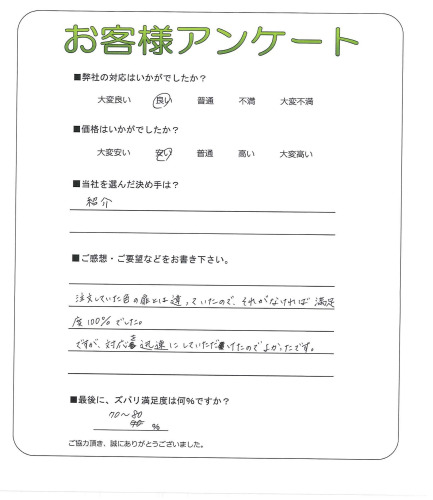 お客様アンケート
■弊社の対応はいかがでしたか？
大変良い 良い 普通 不満 大変不満
■価格はいかがでしたか？
大変安い 安い 普通 高い 大変高い
■当社を選んだ決め手は？
紹介
■ご感想・ご要望などをお書き下さい。
注文していた色の扉とは違っていたので、それがなければ満足
度100%でした。
ですが、対応も迅速にしていただけたのでよかったです。
■最後に、ズバリ満足度は何％ですか？
70～80
％
ご協力頂き、誠にありがとうございました。